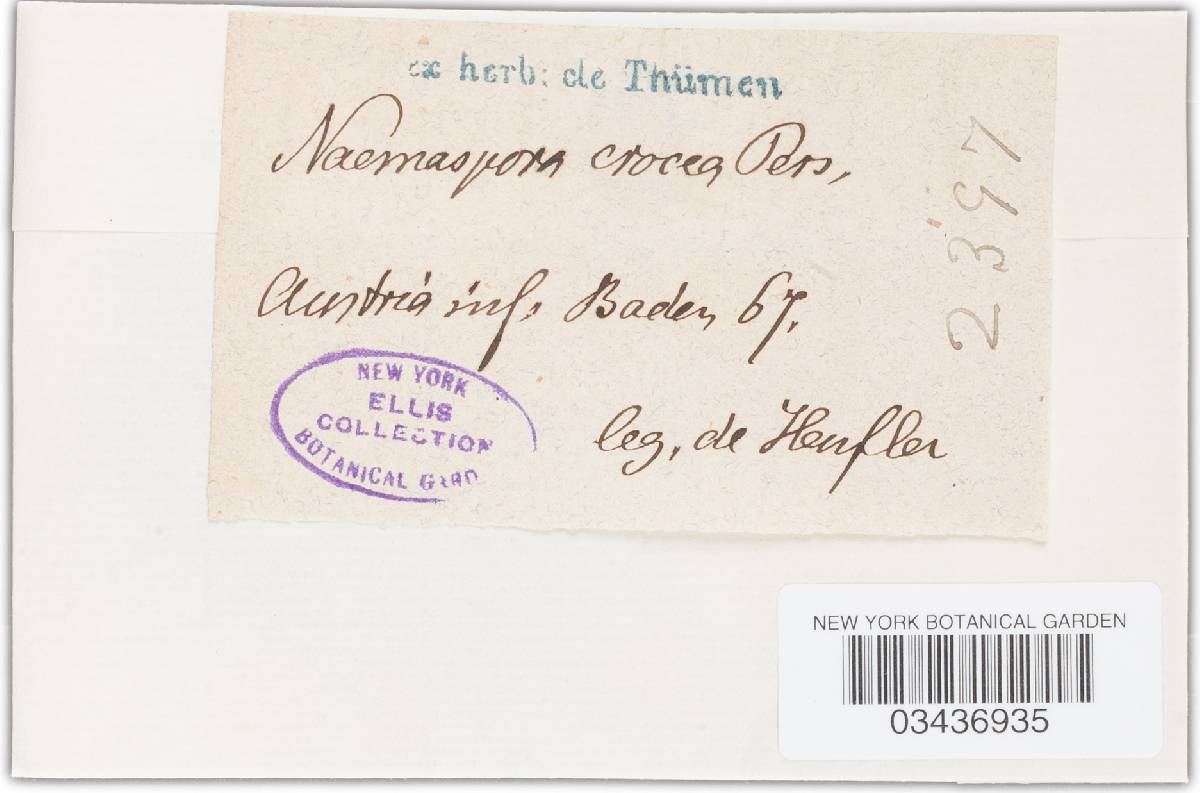 ex herb: de Thümen
Naemaspora crocea Pers,
2397
Austria inf. Baden 67.
NEW YORK
ELLIS
COLLECTION
BOTANICAL GARD
leg. de Heufler
NEW YORK BOTANICAL GARDEN
03436935